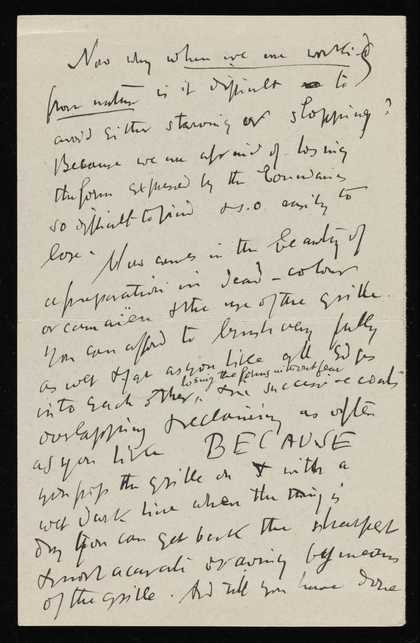 Now why when we are working
from nature is it difficult to
avoid either starving or slopping?
Because we are afraid of losing
the form expressed by the boundaries
so difficult to find & so easily to
lose. Now comes in the beauty of
a preparation in dead-colour
or camaieu & the use of the grille.
You can afford to brush very fully
as wet & far as you like all edges
losing the forms without fear
into each other, & the successive coats
overlapping & reclaiming as often
as you like BECAUSE
you pop the grille on & with a
wet dark line when the thing is
dry you can get back the sharpest
& most accurate drawing by means
of the grille. And till you have done